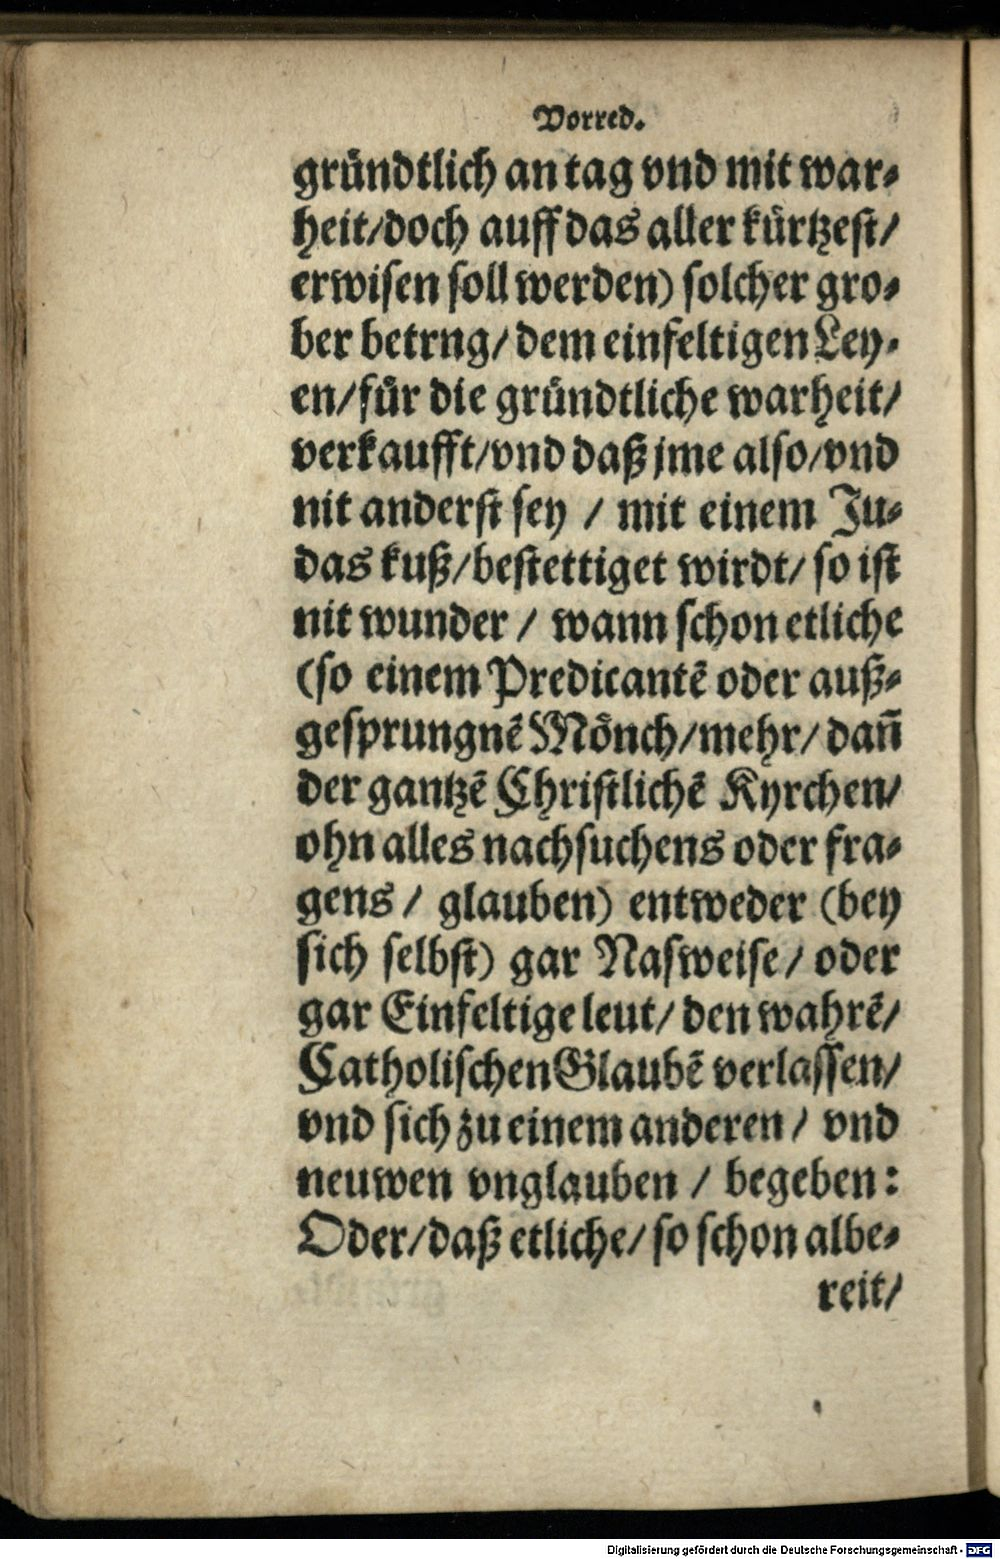 Vorred.
gründtlich an tag vnd mit war⸗
heit/doch auff das aller kürtzest/
erwisen soll werden) solcher gro⸗
ber betrng/ dem einfeltigen Ley⸗
en/für die gründtliche warheit/
verkaufft/vnd daß jme also/vnd
nit anderst sey / mit einem Ju⸗
das kuß/bestettiget wirdt/ so ist
nit wunder / wann schon etliche
(so einem Predicantē oder auß⸗
gesprungnē Mönch/mehr/ dañ
der gantzē Christlichē Kyrchen/
ohn alles nachsuchens oder fra⸗
gens / glauben) entweder (bey
sich selbst) gar Nasweise / oder
gar Einfeltige leut/ den wahrē/
Catholischen Glaubē verlassen/
vnd sich zu einem anderen / vnd
neuwen vnglauben / begeben:
Oder/daß etliche/ so schon albe⸗
reit/
Digitalisierung gefördert durch die Deutsche Forschungsgemeinschaft - DFG